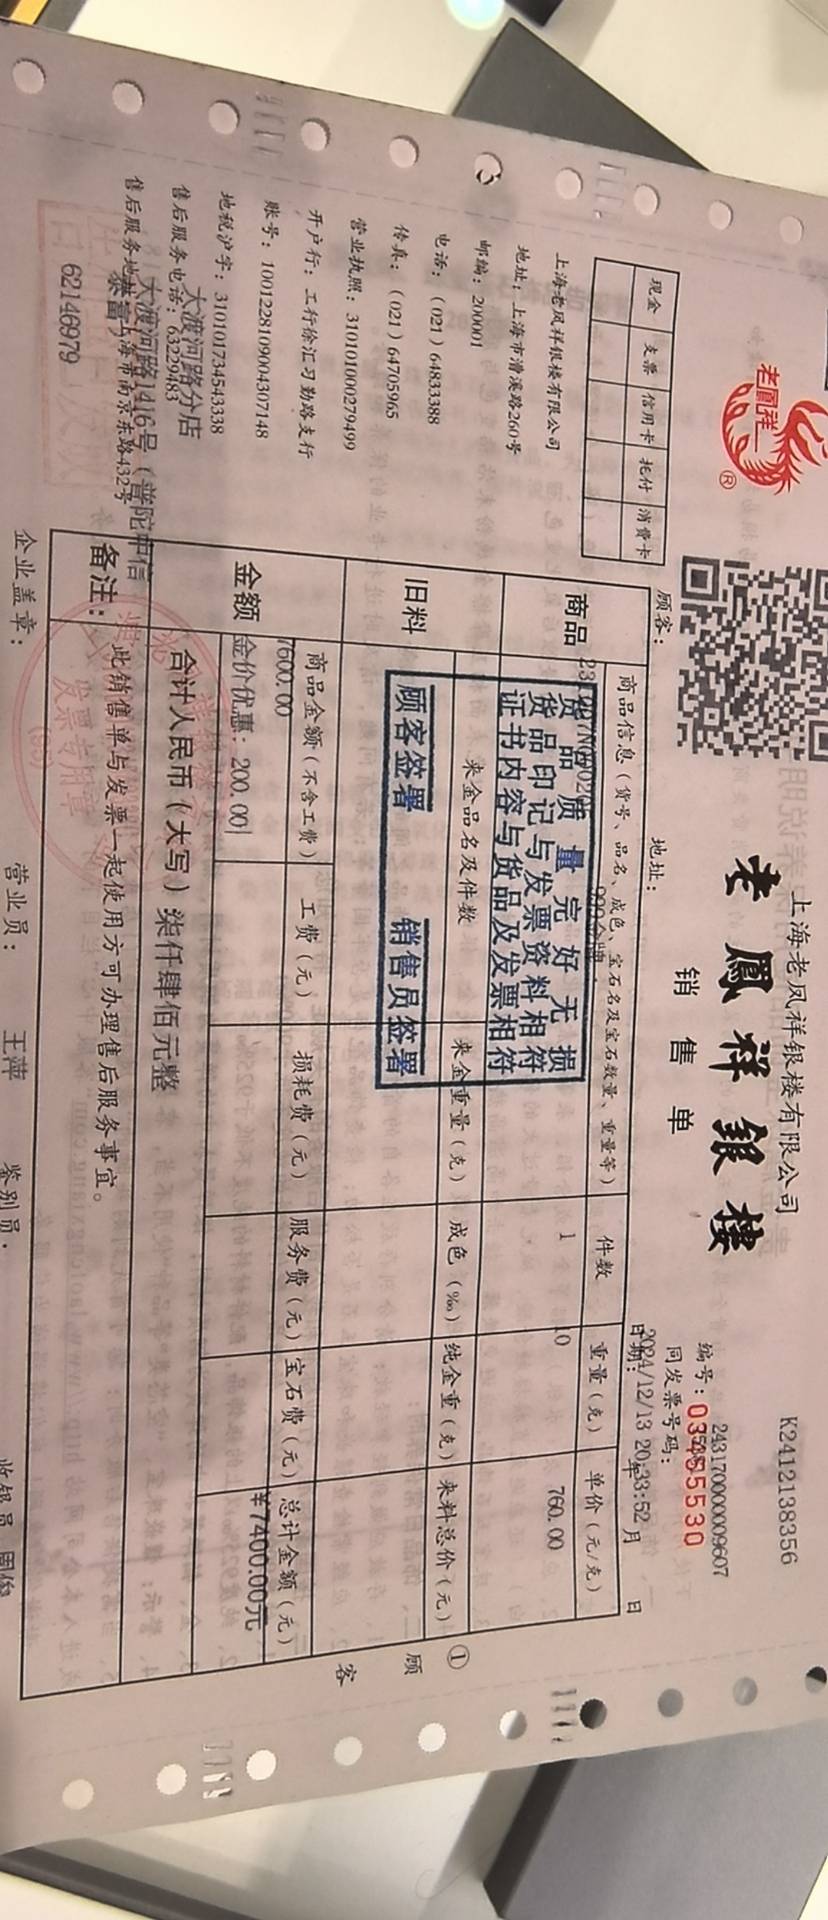 老鳳祥
®
上海老凤祥银楼有限公司
老鳳祥銀樓
销售单
K2412138356
243170000009607
编号：03585530
同发票号码：
2024/12/13 20:33:52
日期： 年 月 日
现金 支票 信用卡 托付 消费卡
顾客： 地址：
上海老凤祥银楼有限公司
地址：上海市漕溪路260号
邮编：200001
电话：(021) 64833388
传真：(021) 64705965
营业执照：310101000279499
开户行：工行徐汇习勤路支行
账号：1001228109004307148
地税沪字：310101734543338
大渡河路分店
售后服务电话：63229483
大渡河路1416号（普陀中信
泰富）
售后服务地址：上海市南京东路432号
62146979
商品
商品信息（货号、品名、成色、宝石名及宝石数量、重量等） 件数 重量（克） 单价（元/克）
1 10 760.00
货品质量完好无损
货品印记与发票资料相符
证书内容与货品及发票相符
顾客签署 销售员签署
旧料
来金品名及件数 来金重量（克） 成色（‰） 纯金重（克） 来料总价（元）
金额
商品金额（不含工费） 工费（元） 损耗费（元） 服务费（元） 宝石费（元） 总计金额（元）
7600.00 ¥7400.00元
金价优惠：200.00
合计人民币（大写） 柒仟肆佰元整
备注： 此销售单与发票一起使用方可办理售后服务事宜。
发票专用章
① 顾客
企业盖章： 营业员： 王萍 鉴别员： 收银员